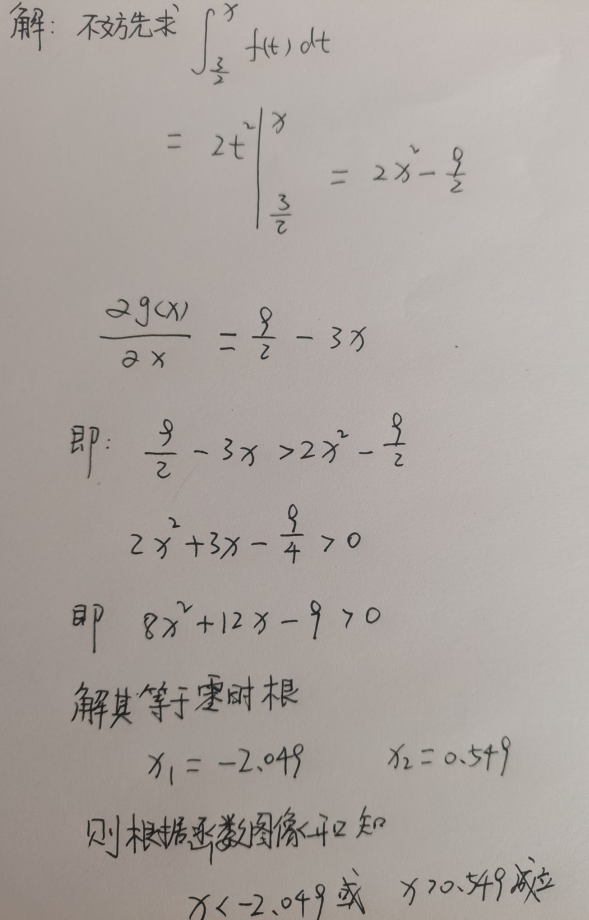 解：不妨先求 ∫_{3/2}^{x} f(t) dt
= 2t² |_{3/2}^{x} = 2x² - 9/2
2g(x)/2x = 9/2 - 3x
即： 9/2 - 3x > 2x² - 9/2
2x² + 3x - 9/4 > 0
即 8x² + 12x - 9 > 0
解其等于零时根
x₁ = -2.049 x₂ = 0.549
则根据函数图像可知
x < -2.049 或 x > 0.549 成立